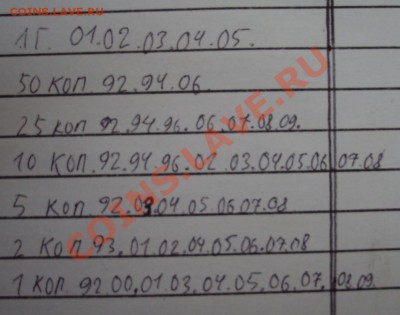 COINS.LAVE.RU
1 Г. 01.02.03.04.05.
50 КОП. 92.94.06.
25 КОП 92.94.96.06.07.08.09.
10 КОП.92.94.96.02 03.04.05.06 07.08
5 КОП. 92.03.04.05.06.07.08
2 КОП 93,01.02.04.05.06.07.08
1 КОП. 92 00,01.03.04.05,06.07, 08 09.
COINS.LAVE.RU